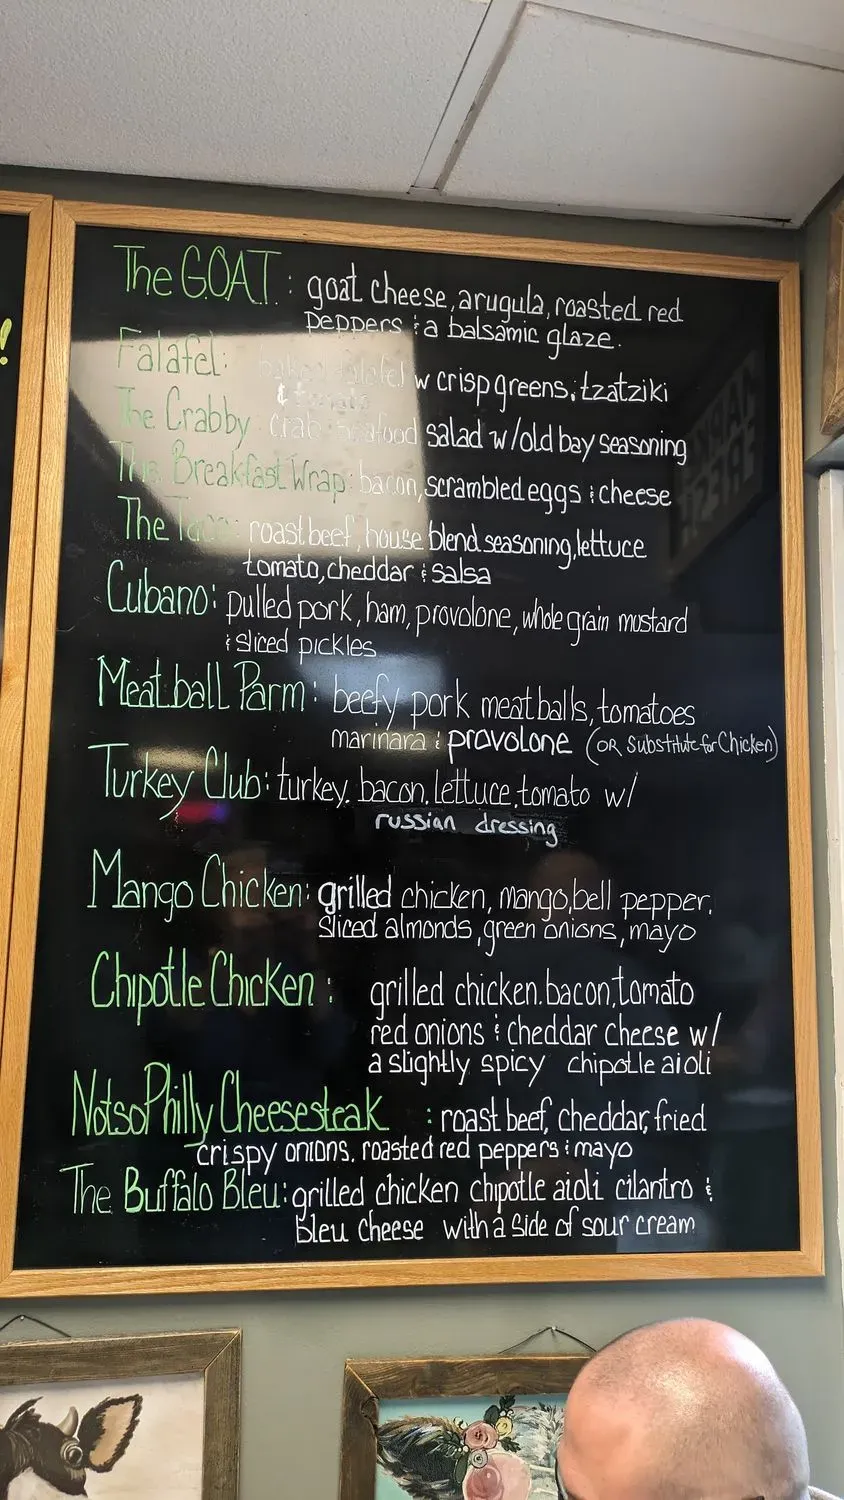 The G.O.A.T. : goat cheese, arugula, roasted red
peppers & a balsamic glaze.
Falafel: baked falafel w crisp greens, tzatziki
& tomato
The Crabby: crab seafood salad w/old bay seasoning
The Breakfast Wrap: bacon, scrambled eggs & cheese
The Taco: roast beef, house blend seasoning, lettuce
tomato, cheddar & salsa
Cubano: pulled pork, ham, provolone, whole grain mustard
& sliced pickles
Meatball Parm: beefy pork meatballs, tomatoes
marinara & provolone (OR Substitute for Chicken)
Turkey Club: turkey, bacon, lettuce, tomato w/
russian dressing
Mango Chicken: grilled chicken, mango, bell pepper,
sliced almonds, green onions, mayo
Chipotle Chicken : grilled chicken, bacon, tomato
red onions & cheddar cheese w/
a slightly spicy chipotle aioli
NotsoPhilly Cheesesteak : roast beef, cheddar, fried
crispy onions, roasted red peppers & mayo
The Buffalo Bleu: grilled chicken chipotle aioli cilantro &
bleu cheese with a side of sour cream
!